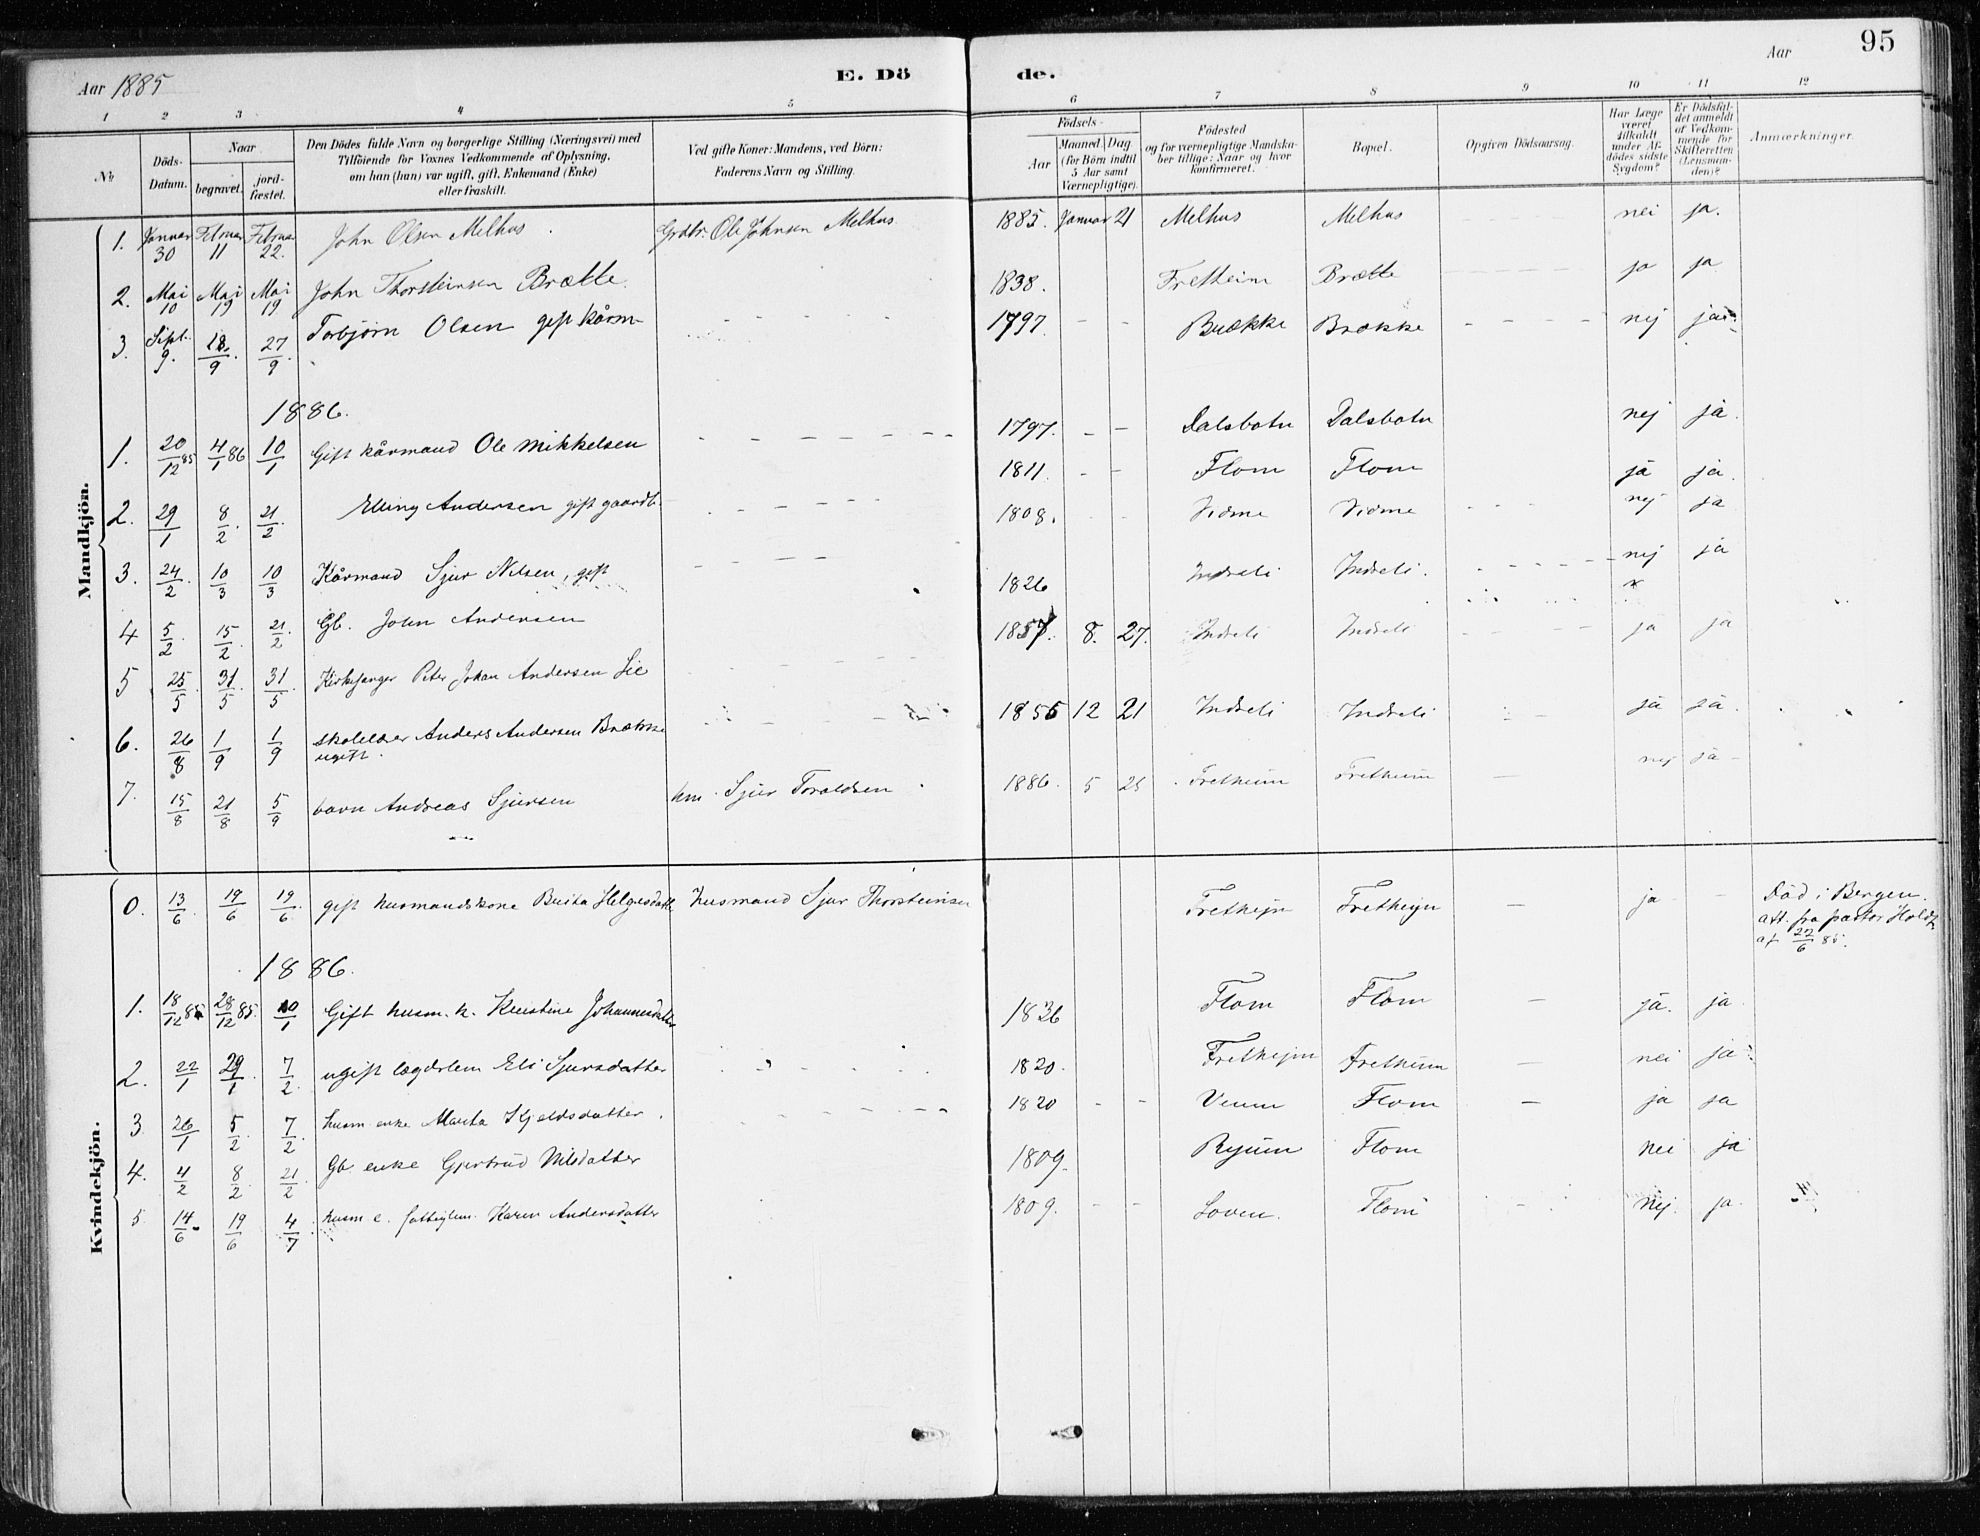 95
Aar 1885
E. Dö de.
Aar
1 2 3 4 5 6 7 8 9 10 11 12
No
Döds-Datum.
Naar
begravet.
jord-fæstet.
Den Dödes fulde Navn og borgerlige Stilling (Næringsvei) med
Tilföiende for Voxnes Vedkommende af Oplysning,
om han (hun) var ugift, gift, Enkemand (Enke)
eller fraskilt.
Ved gifte Koner: Mandens, ved Börn:
Faderens Navn og Stilling.
Födsels-
Aar
Maaned. Dag
(for Börn indtil
5 Aar samt
Værnepligtige).
Födested
og for værnepligtige Mandska-
ber tillige: Naar og hvor
konfirmeret.
Bopæl.
Opgiven Dödsaarsag.
Har Læge
været
tilkaldt
under Af-
dödes sidste
Sygdom?
Er Dödsfal-
det anmeldt
af Vedkom-
mende for
Skifteretten
(Lensman-
den)?
Anmærkninger.
Mandkjön.
1. Januar 30 Februar 11 Februar 22. John Olsen Melhus. Grdbr. Ole Johnsen Melhus 1885. Januar 21 Melhus Melhus nei ja.
2. Mai 10 Mai 19 Mai 19 John Thorsteinsen Brætte. 1838. Fretheim Brætte ja ja
3. Sept. 9. 18/9. 27/9. Torbjörn Olsen gift kårm- 1797. Brække Brække nej ja
1886.
1. 20/12 85 4/1 86 10/1 Gift kårmand Ole Mikkelsen 1797. Dalsbotn Dalsbotn nej ja.
2. 29/1 8/2. 21/2. Elling Andersen gift gaardb. 1811. Flom Flom ja ja.
3. 24/2. 10/3 10/3 Kårmand Sjur Nilsen, gift 1808. Vidme Vidme nej ja
4 5/2. 15/2. 21/2. Gb. John Andersen 1826 Indreli Indreli. nej ja
5 25/5. 31/5. 31/5. Kirkesanger Peter Johan Andersen Lie 1857. 8. 27. Indreli Indreli ja ja
6. 26/8 1/9 1/9 skolelærer Anders Andersen Brække 1855 12 21 Indreli Indreli ja ja.
ugift.
7. 15/8 21/8 5/9 barn Andreas Sjursen hm. Sjur Toraldsen 1886. 5 25 Fretheim Fretheim nej ja
Kvindekjön.
0. 13/6. 19/6 19/6. gift husmandskone Brita Helgesdatt husmand Sjur Thorsteinsen Fretheijn Fretheijn ja Död i Bergen.
att. fra pastor Holdt
af 22/6 85.
1886.
1. 18/12 85 28/12 85. 10/1 Gift husm. k. Kristine Johannesdatter 1836 Flom Flom ja. ja
2. 22/1 29/1. 7/2. ugift lægdslem Eli Sjursdatter 1820. Fretheijm Fretheim nei ja
3 26/1 5/2. 7/2. husm enke Marita Kjeldsdatter. 1820 Venm Flom ja ja
4. 4/2 8/2. 21/2 Gb. enke Gjertrud Nilsdatter 1809. Ryum Flom nei ja
5. 14/6 19/6 4/7 husm e. fattiglem. Karen Andersdatter 1809. Loven. Flom nej. ja.